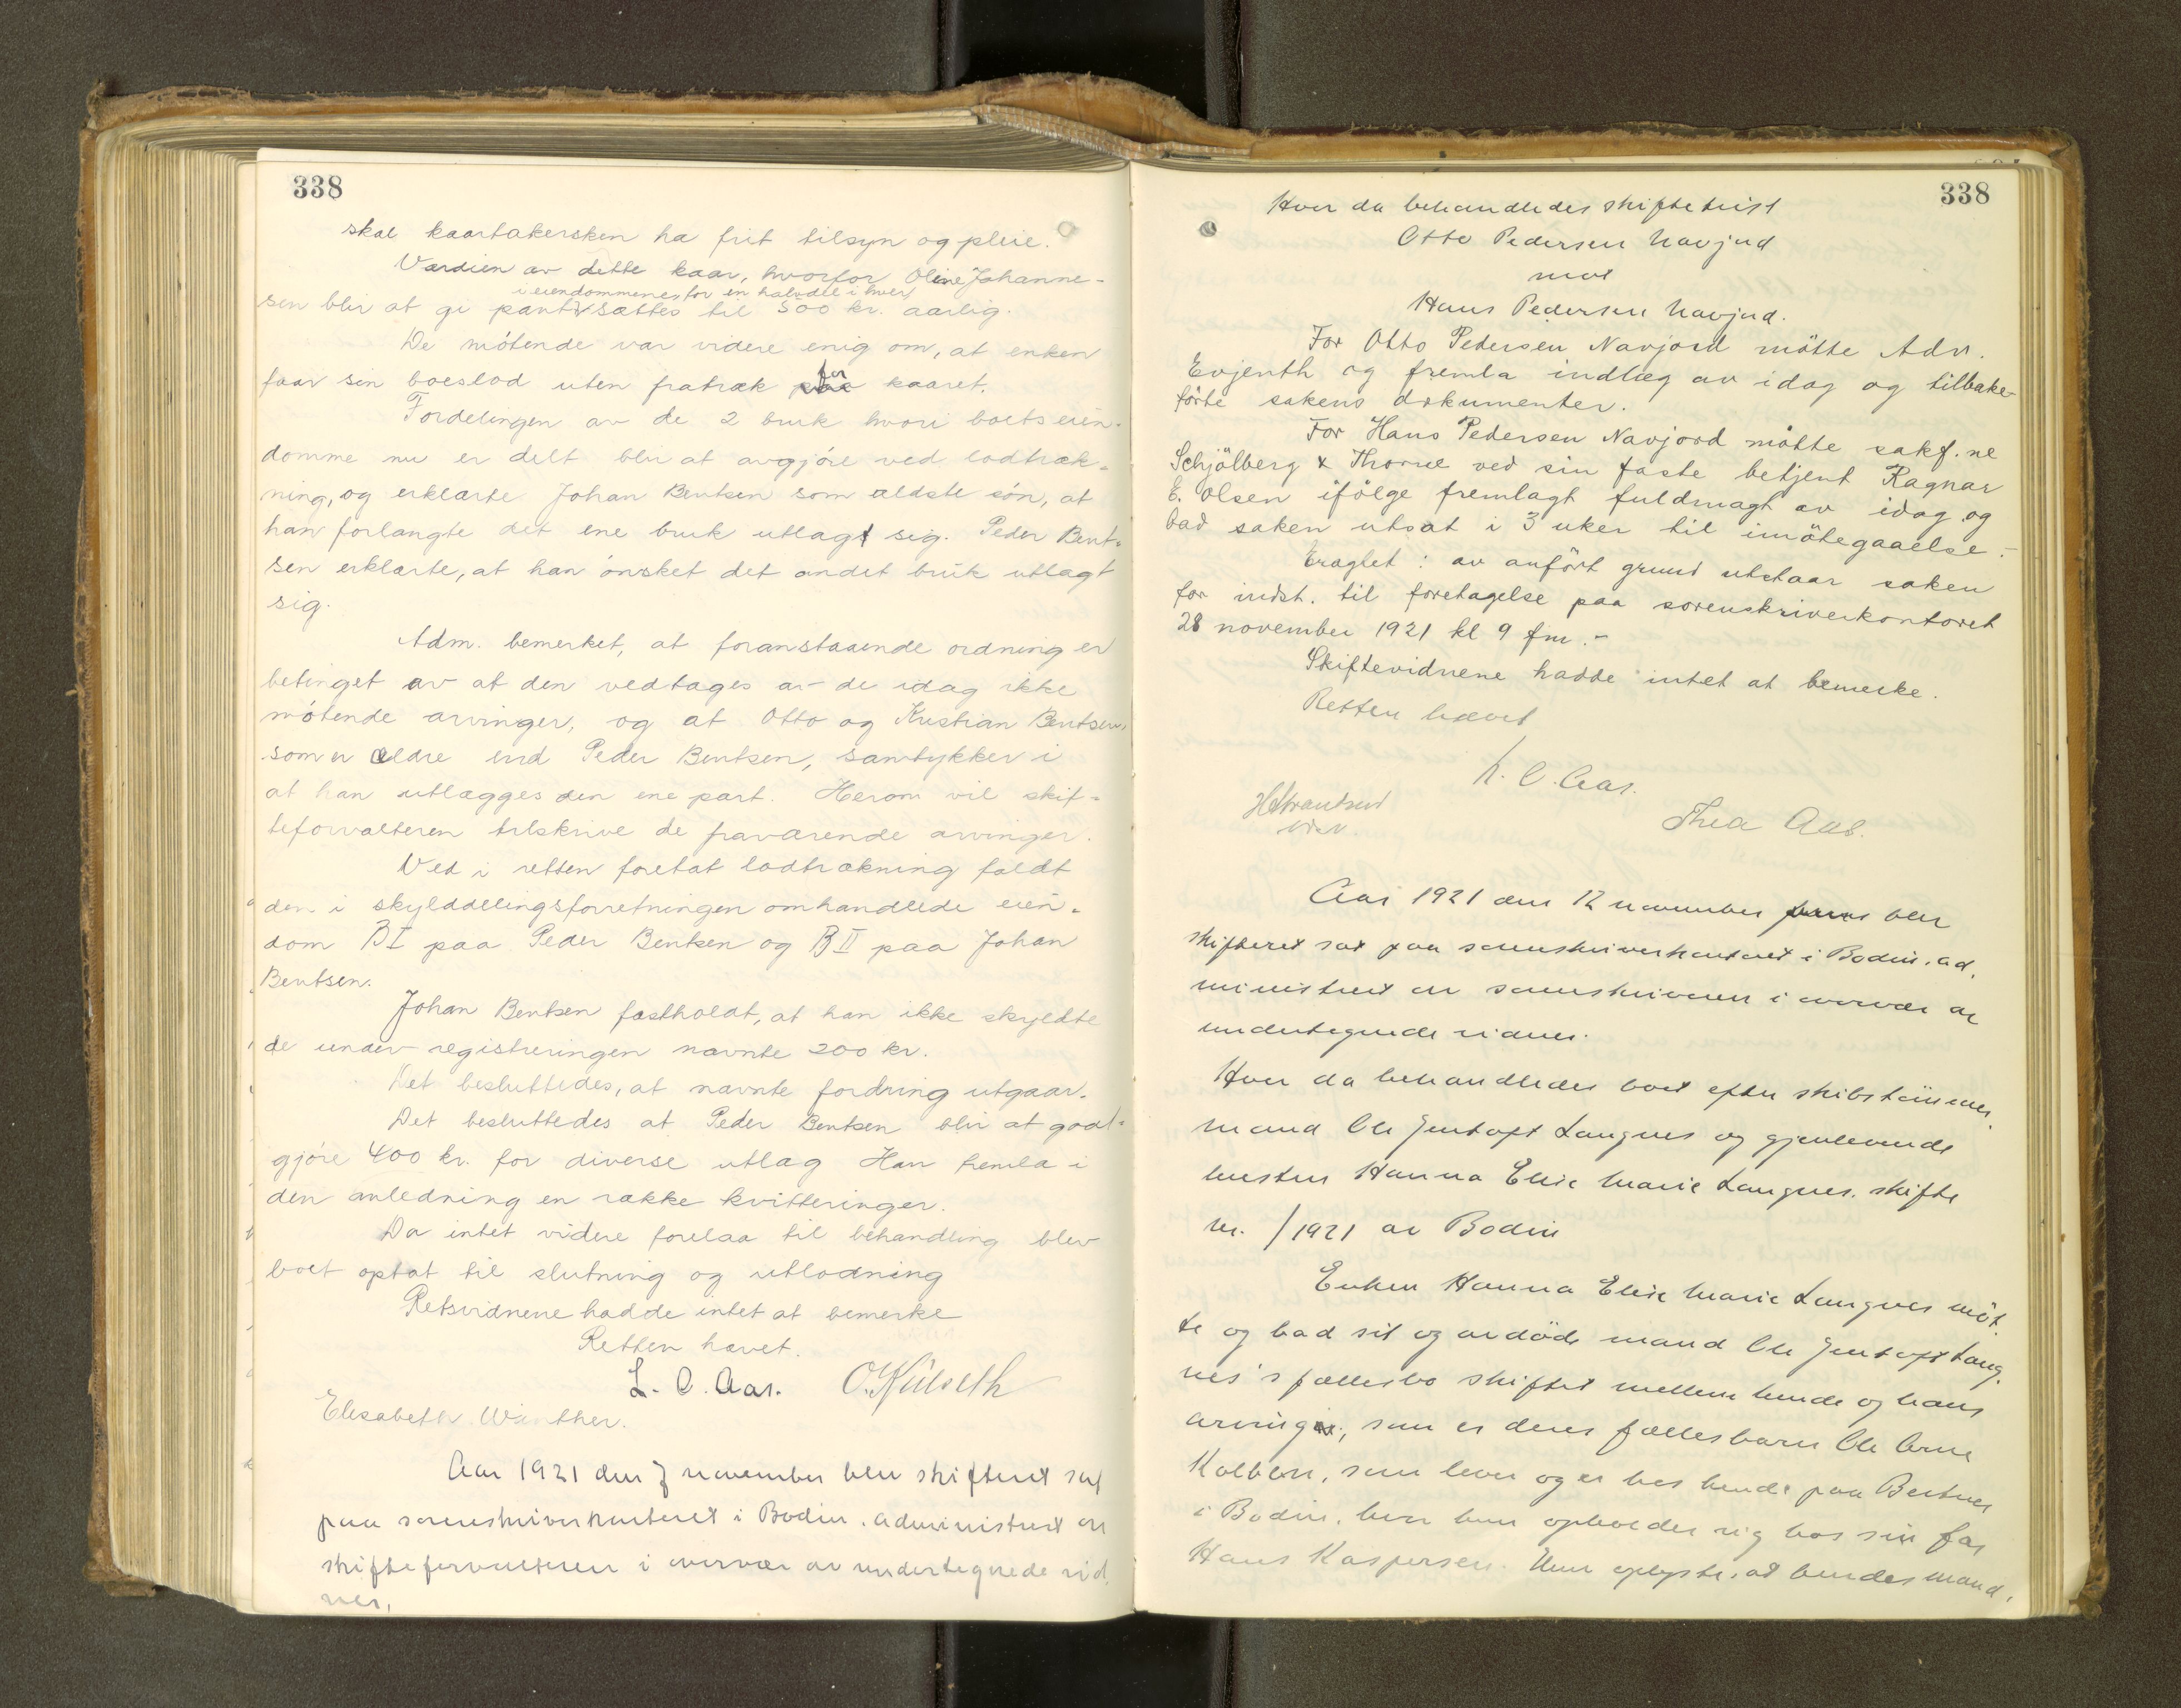 338
skal kaartakersken ha frit tilsyn og pleie.
Værdien av dette kaar, hvorfor Oline Johanne-
i eiendommene for en halvdel i hver
sen blir at gi pant, sættes til 500 kr. aarlig.
De mötende var videre enig om, at enken
faar sin boeslod uten fratræk for kaaret.
Fordelingen av de 2 bruk hvori boets eien-
domme nu er delt blir at avgjöre ved lodtræk-
ning, og erklærte Johan Bentsen som ældste sön, at
han forlangte det ene bruk utlagt sig. Peder Bent-
sen erklærte, at han önsket det andet bruk utlagt
sig.
Adm. bemerket, at foranstaaende ordning er
betinget av at den vedtages av de idag ikke
mötende arvinger, og at Otto og Kristian Bentsen,
som er ældre end Peder Bentsen, samtykker i
at han utlægges den ene part. Herom vil skif-
teforvalteren tilskrive de fraværende arvinger.
Ved i retten foretat lodtrækning faldt
den i skylddelingsforretningen omhandlede eien-
dom B I paa Peder Bentsen og B II paa Johan
Bentsen.
Johan Bentsen fastholdt, at han ikke skyldte
de under registreringen nævnte 200 kr.
Det besluttedes, at nævnte fordring utgaar.
Det besluttedes at Peder Bentsen blir at godt-
gjöre 400 kr. for diverse utlæg Han fremla i
den anledning en række kvitteringer.
Da intet videre forelaa til behandling blev
boet optat til slutning og utlodning
Retsvidnene hadde intet at bemerke
Retten hævet.
L. C. Aas. O. Külseth
Elisabeth Winther.
Aar 1921 den 7 november blev skifteret sat
paa sorenskriverkontoret i Bodin. Administrert av
skifteforvalteren i overvær av undertegnede vid-
ner.
338
Hvor da behandledes skiftetvist
Otto Pedersen Navjord
mot
Hans Pedersen Navjord.
For Otto Pedersen Navjord mötte Adv.
Evjenth og fremla indlæg av idag og tilbake-
förte sakens dokumenter.
For Hans Pedersen Navjord mötte sakf. ne
Schjölberg & Thorne ved sin faste betjent Ragnar
E. Olsen ifölge fremlagt fuldmagt av idag og
bad saken utsat i 3 uker til imötegaaelse.-
Eragtet: av anfört grund utstaar saken
for indst. til foretagelse paa sorenskriverkontoret
28 november 1921 kl 9 fm.-
Skiftevidnene hadde intet at bemerke.
Retten hævet
L. C. Aas.
Thea Aas.
Aar 1921 den 12 november blev
skifteret sat paa sorenskriverkontoret i Bodin. Ad-
ministrert av sorenskriveren i overvær av
undertegnede vidner.
Hvor da behandledes boet efter skibstömmer-
mand Ole Jentoft Langnes og gjenlevende
hustru Hanna Elise Marie Langnes. skifte
nr. /1921 av Bodin
Enken Hanna Elise Marie Langnes möt-
te og bad sit og avdöde mand Ole Jentoft Lang-
nes's fællesbo skiftet mellem hende og hans
arving, som er deres fællesbarn Ole Arne
Kolbein, som lever og er hos hende paa Bertnes
i Bodin, hvor hun opholder sig hos sin far
Hans Kaspersen. Hun oplyste, at hendes mand,